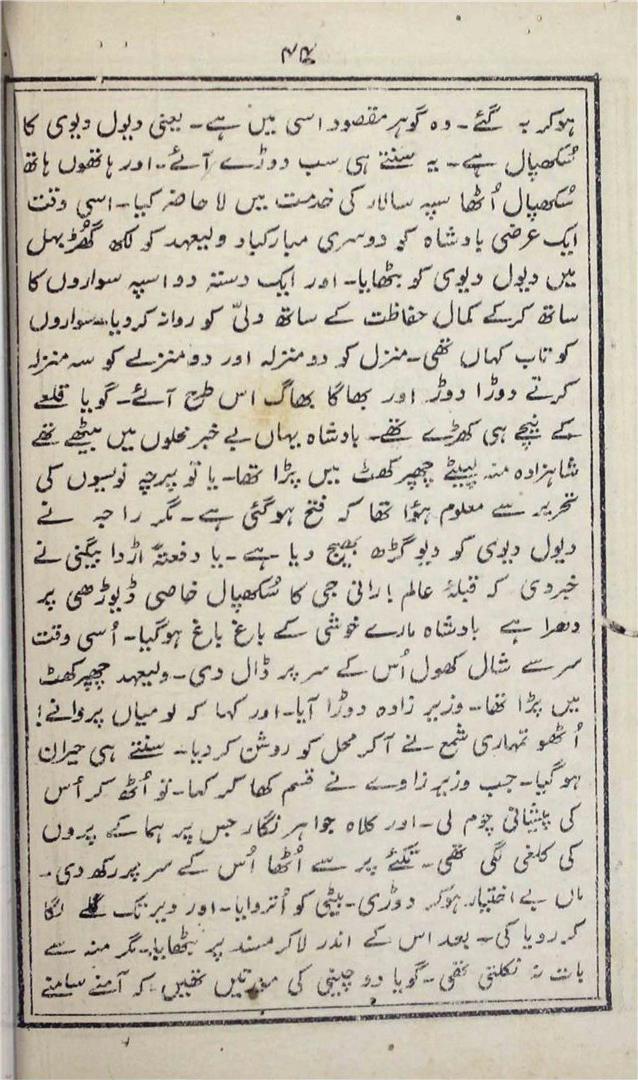 ۴۵
ہوکر بہ گئے۔ وہ گوہر مقصود اسی میں ہے۔ یعنی دیول دیوی کا
سُکھپال ہے۔ یہ سنتے ہی سب دوڑے آئے۔ اور ہاتھوں ہاتھ
سُکھپال اُٹھا سپہ سالار کی خدمت میں لا حاضر کیا۔ اسی وقت
ایک عرضی بادشاہ کو دوسری مبارکباد ولیعہد کو لکھ گھُڑبہل
میں دیول دیوی کو بٹھایا۔ اور ایک دستہ دو اسپہ سواروں کا
ساتھ کرکے کمال حفاظت کے ساتھ دلّی کو روانہ کردیا۔ سواروں
کو تاب کہاں تھی۔ منزل کو دو منزلہ اور دو منزلے کو سہ منزلہ
کرتے دوڑا دوڑ اور بھاگا بھاگ اس طرح آئے۔ گویا قلعے
کے نیچے ہی کھڑے تھے۔ بادشاہ یہاں بے خبر محلوں میں بیٹھے تھے
شاہزادہ منہ لپیٹے چھپرکھٹ میں پڑا تھا۔ یا تو پرچہ نویسوں کی
تحریر سے معلوم ہؤا تھا کہ فتح ہوگئی ہے۔ مگر راجہ نے
دیول دیوی کو دیوگڑھ بھیج دیا ہے۔ یا دفعتہً اُردا بیگنی نے
خبردی کہ قبلۂ عالم بارانی جی کا سُکھپال خاصی ڈیوڑھی پر
دھرا ہے بادشاہ مارے خوشی کے باغ باغ ہوگیا۔ اُسی وقت
سر سے شال کھول اُس کے سر پر ڈال دی۔ ولیعہد چھپرکھٹ
میں پڑا تھا۔ وزیر زادہ دوڑا آیا۔ اور کہا کہ لو میاں پروانے!
اُٹھو تمہاری شمع نے آکر محل کو روشن کردیا۔ سنتے ہی حیران
ہوگیا۔ جب وزیر زادے نے قسم کھا کر کہا۔ تو اُٹھ کر اُس
کی پیشانی چوم لی۔ اور کلاہ جواہر نگار جس پر ہما کے پروں
کی کلغی لگی تھی۔ تکئے پر سے اُٹھا اُس کے سر پر رکھ دی۔
ماں بے اختیار ہوکر دوڑی۔ بیٹی کو اُتروایا۔ اور دیر تک گلے لگا
کر رویا کی۔ بعد اس کے اندر لاکر مسند پر بٹھایا۔ مگر منہ سے
بات نہ نکلتی تھی۔ گویا دو چینی کی مورتیں تھیں کہ آمنے سامنے